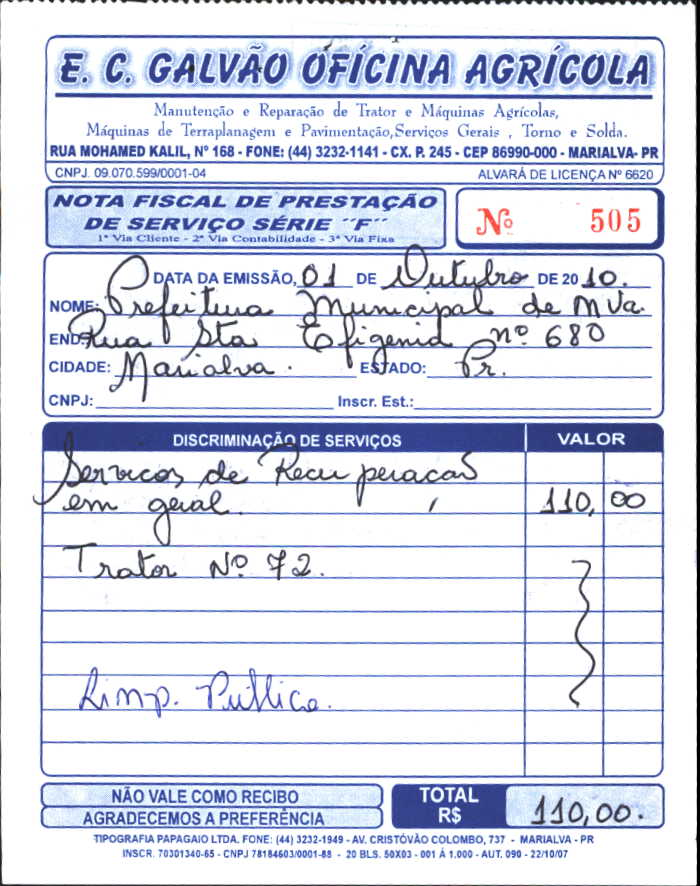 E. C. GALVÃO OFÍCINA AGRÍCOLA
Manutenção e Reparação de Trator e Máquinas Agrícolas,
Máquinas de Terraplanagem e Pavimentação,Serviços Gerais , Torno e Solda.
RUA MOHAMED KALIL, Nº 168 - FONE: (44) 3232-1141 - CX. P. 245 - CEP 86990-000 - MARIALVA- PR
CNPJ. 09.070.599/0001-04 ALVARÁ DE LICENÇA Nº 6620
NOTA FISCAL DE PRESTAÇÃO
DE SERVIÇO SÉRIE ´´F´´
1ª Via Cliente - 2ª Via Contabilidade - 3ª Via Fixa
Nº 505
DATA DA EMISSÃO, 01 DE Outubro DE 20 10.
NOME: Prefeitura Municipal de Mva.
END: Rua Sta Efigenia nº 680
CIDADE: Marialva. ESTADO: Pr.
CNPJ: Inscr. Est.:
DISCRIMINAÇÃO DE SERVIÇOS VALOR
Servicos de Recuperacao
em geral. 110,00
Trator Nº 72.
Limp. Publica.
NÃO VALE COMO RECIBO
AGRADECEMOS A PREFERÊNCIA
TOTAL
R$ 110,00.
TIPOGRAFIA PAPAGAIO LTDA. FONE: (44) 3232-1949 - AV. CRISTÓVÃO COLOMBO, 737 - MARIALVA - PR
INSCR. 70301340-65 - CNPJ 78184603/0001-88 - 20 BLS. 50X03 - 001 Á 1.000 - AUT. 090 - 22/10/07